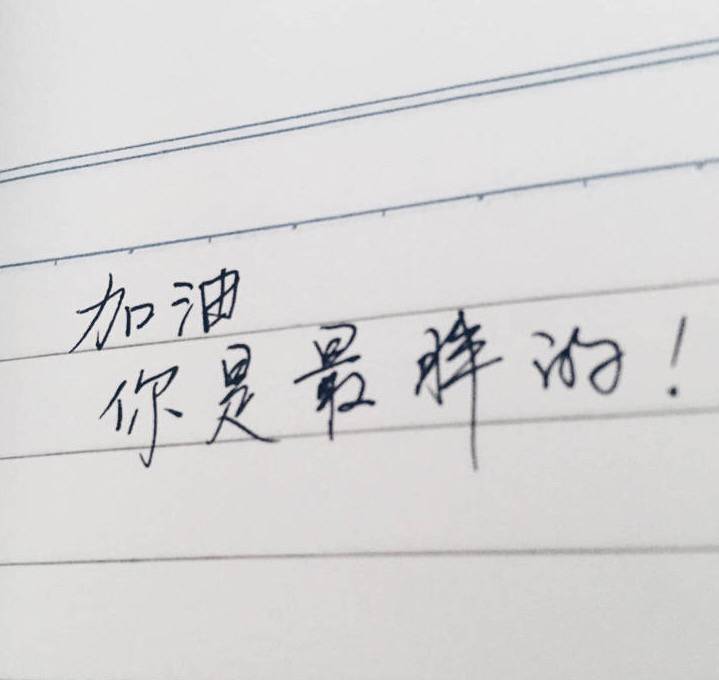 加油
你是最胖的！